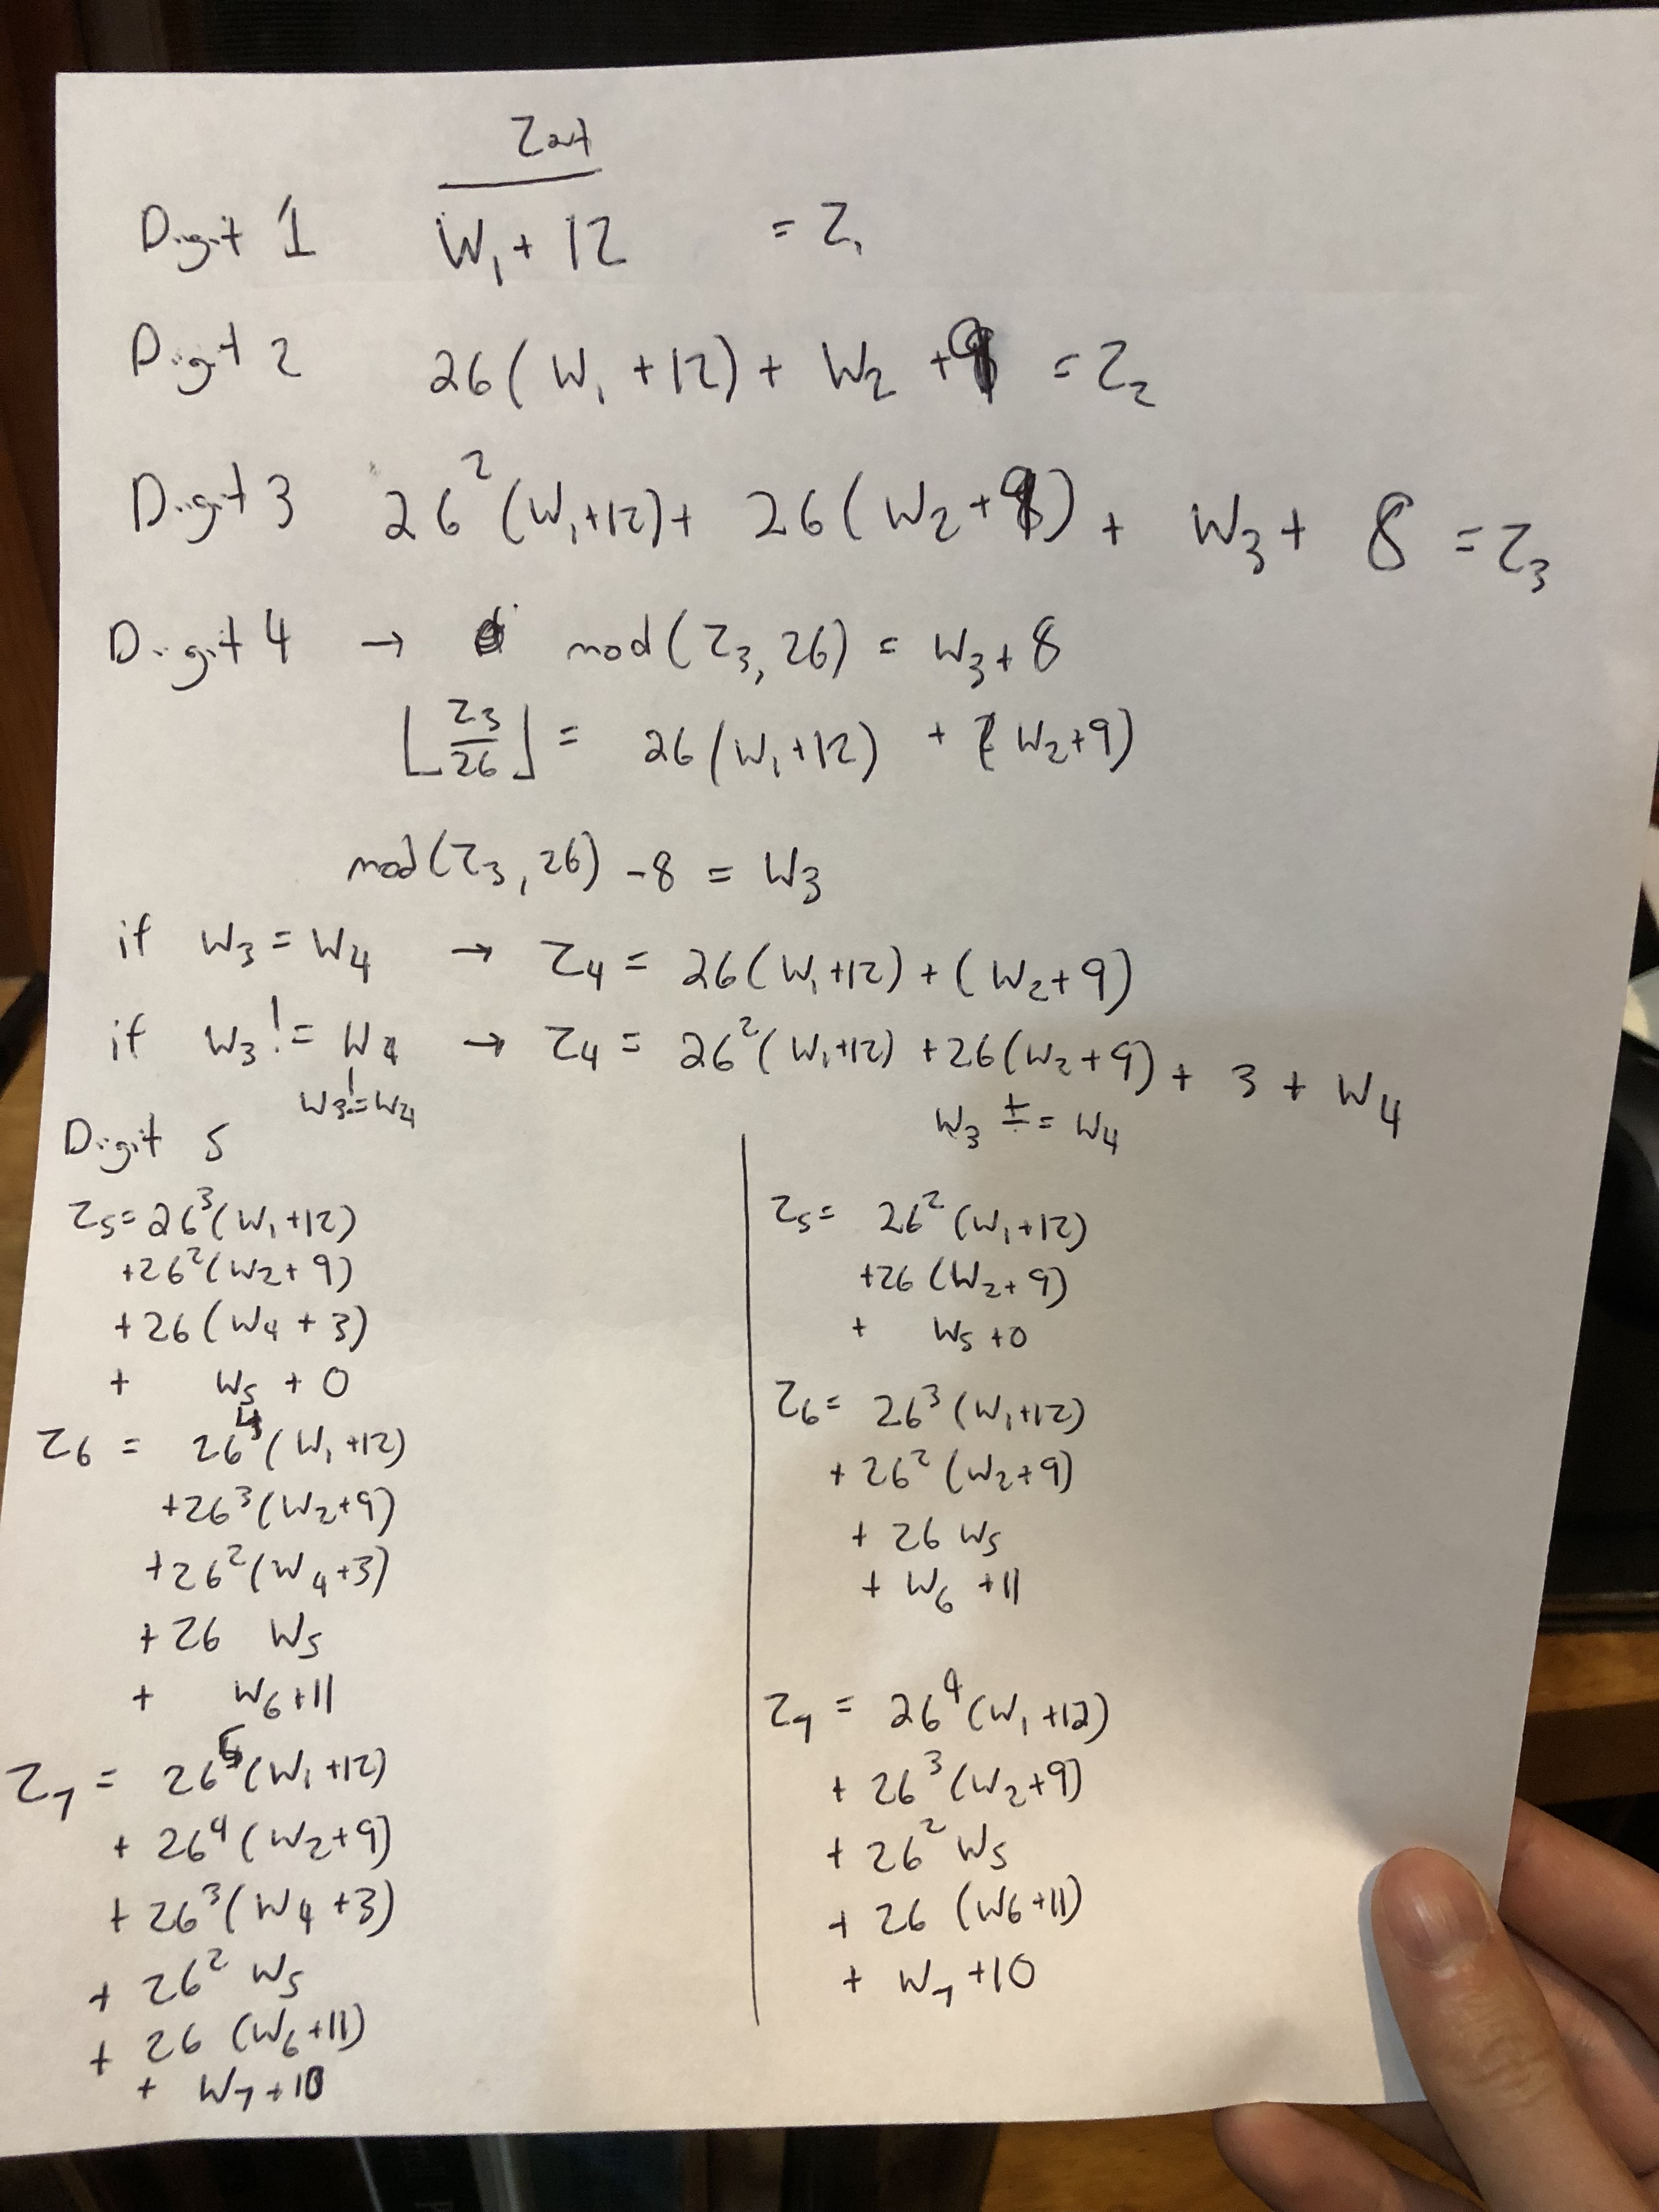 Zout
Digit 1 W₁ + 12 = Z₁
Digit 2 26(W₁ + 12) + W₂ + 9 = Z₂
Digit 3 26²(W₁+12) + 26(W₂+9) + W₃ + 8 = Z₃
Digit 4 → mod(Z₃, 26) = W₃+8
⌊Z₃/26⌋ = 26(W₁+12) + (W₂+9)
mod(Z₃, 26) - 8 = W₃
if W₃ = W₄ → Z₄ = 26(W₁+12) + (W₂+9)
if W₃ != W₄ → Z₄ = 26²(W₁+12) + 26(W₂+9) + 3 + W₄
W₃ != W₄
Digit 5
Z₅ = 26³(W₁+12)
+26²(W₂+9)
+26(W₄ + 3)
+ W₅ + 0
Z₆ = 26⁴(W₁+12)
+26³(W₂+9)
+26²(W₄+3)
+26 W₅
+ W₆+11
Z₇ = 26⁵(W₁+12)
+ 26⁴(W₂+9)
+ 26³(W₄+3)
+ 26² W₅
+ 26 (W₆+11)
+ W₇+10
W₃ == W₄
Z₅ = 26²(W₁+12)
+26(W₂+9)
+ W₅+0
Z₆ = 26³(W₁+12)
+ 26²(W₂+9)
+ 26 W₅
+ W₆ +11
Z₇ = 26⁴(W₁+12)
+ 26³(W₂+9)
+ 26² W₅
+ 26 (W₆+11)
+ W₇ +10